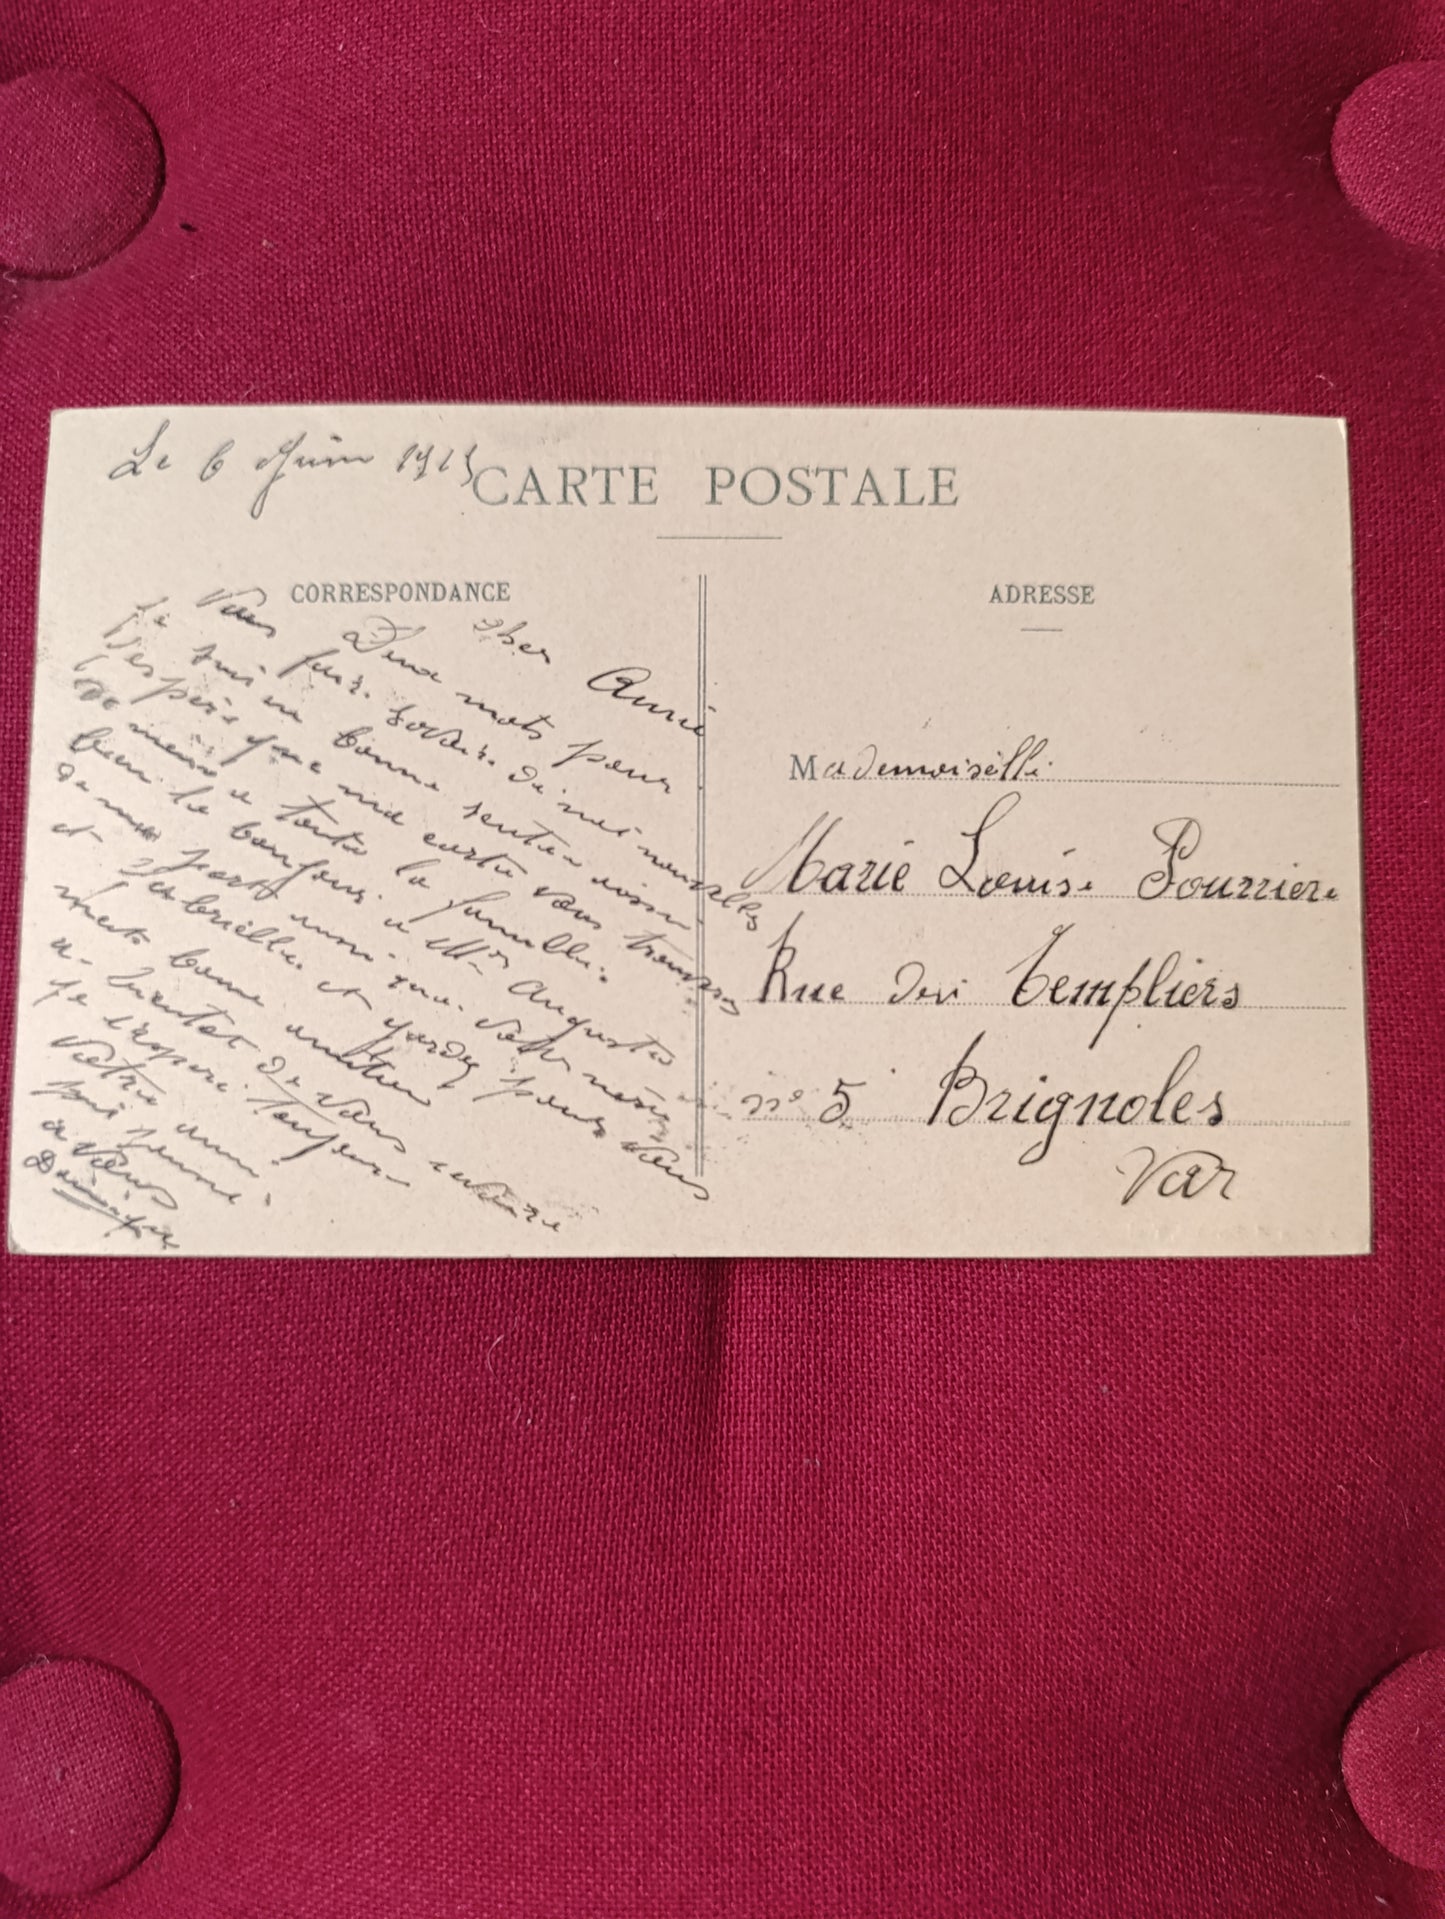 Le 6 Juin 1915
CARTE POSTALE
CORRESPONDANCE
cher Amie
Deux mots pour
Vous faire savoire de mes nouvelles
je suis en bonne santer
j'espère que ma carte vous trouvera
de meme a toute la famille.
bien le bonjour a Mr Auguste
de ma part ainsi que
et Gabrielle et garder pour vous
bonne amitier
a bientot de vous
je l'espere toujours
Votre ami
qui pense
a Vous
ADRESSE
Mademoiselle
Marie Louise Pourriere
Rue des Templiers
n° 5 Brignoles
Var